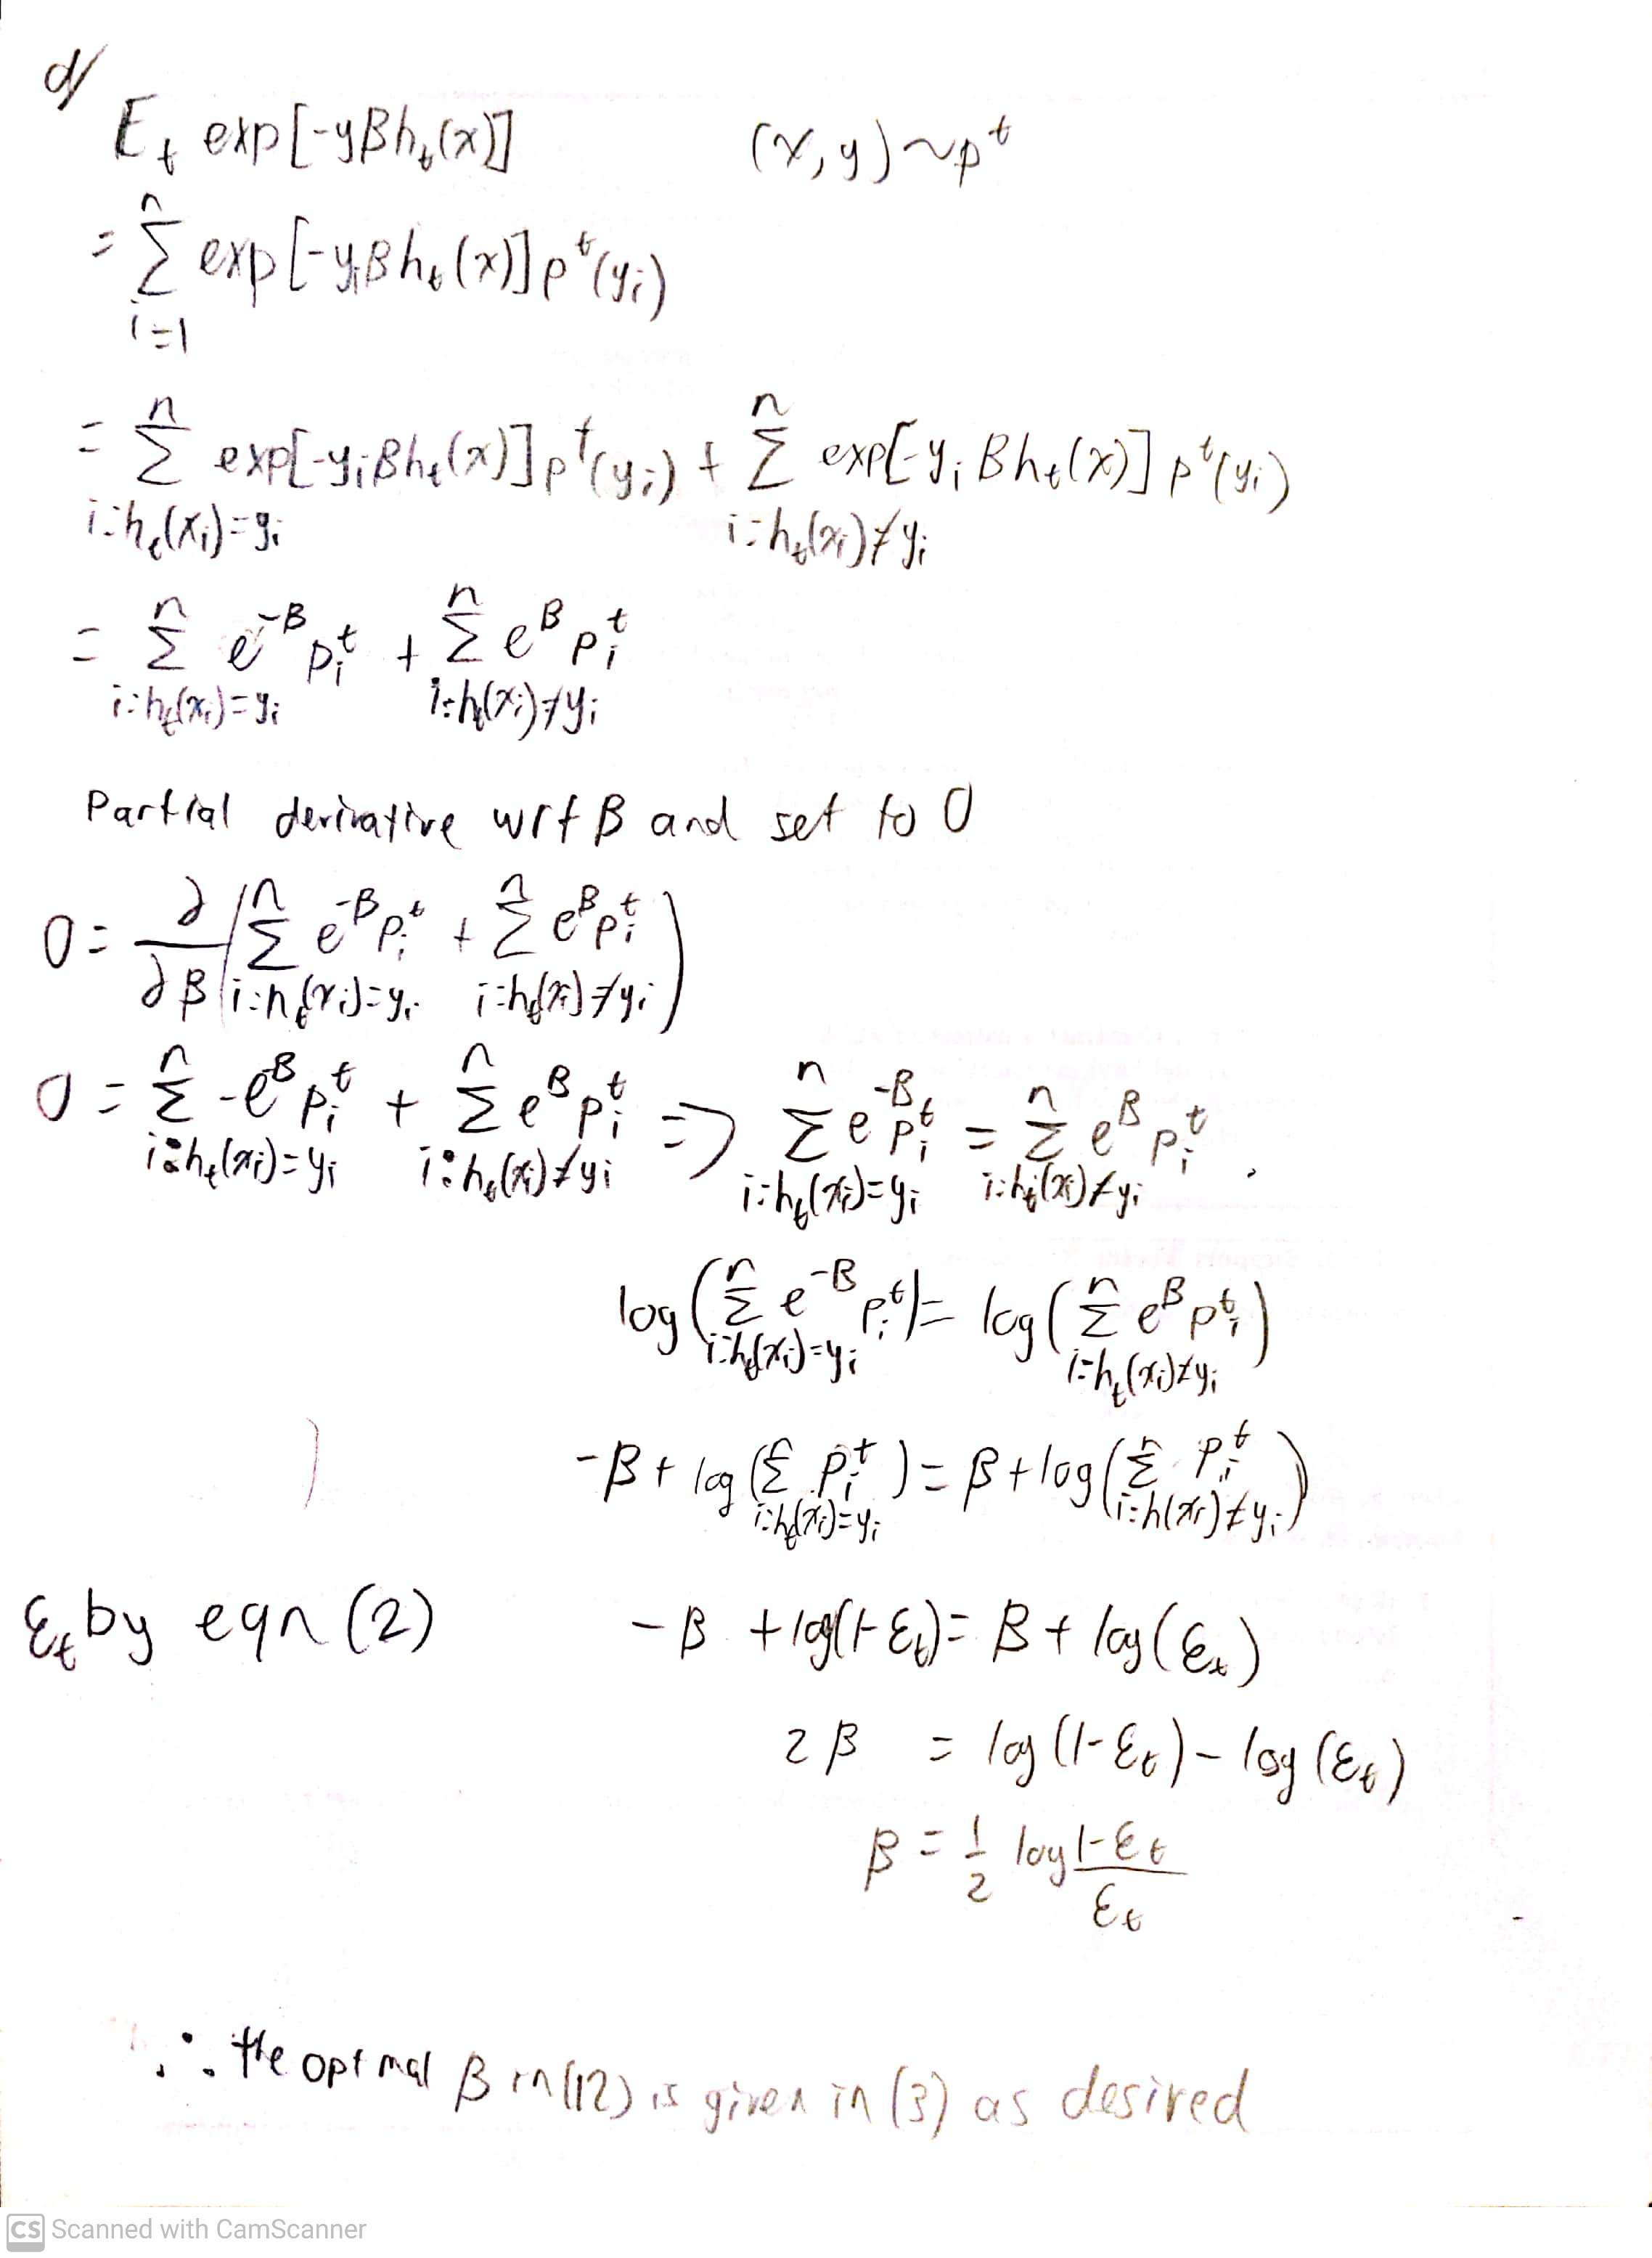 d/
E_t exp[-yβh_t(x)]     (x,y)~p^t
= Σ_{i=1}^n exp[-y_iβh_t(x)]p^t(y_i)
= Σ^n_{i:h_t(x_i)=y_i} exp[-y_iβh_t(x)]p^t(y_i) + Σ^n_{i:h_t(x_i)≠y_i} exp[-y_iβh_t(x)]p^t(y_i)
= Σ^n_{i:h_t(x_i)=y_i} e^{-β}p_i^t + Σ^n_{i:h_t(x_i)≠y_i} e^β p_i^t
Partial derivative wrt β and set to 0
0 = ∂/∂β (Σ^n_{i:h_t(x_i)=y_i} e^{-β}p_i^t + Σ^n_{i:h_t(x_i)≠y_i} e^β p_i^t)
0 = Σ^n_{i:h_t(x_i)=y_i} -e^{-β}p_i^t + Σ^n_{i:h_t(x_i)≠y_i} e^β p_i^t => Σ^n_{i:h_t(x_i)=y_i} e^{-β}p_i^t = Σ^n_{i:h_t(x_i)≠y_i} e^β p_i^t
log(Σ^n_{i:h_t(x_i)=y_i} e^{-β}p_i^t) = log(Σ^n_{i:h_t(x_i)≠y_i} e^β p_i^t)
-β + log(Σ^n_{i:h_t(x_i)=y_i} p_i^t) = β + log(Σ^n_{i:h(x_i)≠y_i} p_i^t)
ε_t by eqn (2)     -β + log(1-ε_t) = β + log(ε_t)
2β = log(1-ε_t) - log(ε_t)
β = 1/2 log (1-ε_t)/ε_t
∴ the optmal β in (12) is given in (3) as desired
CS Scanned with CamScanner